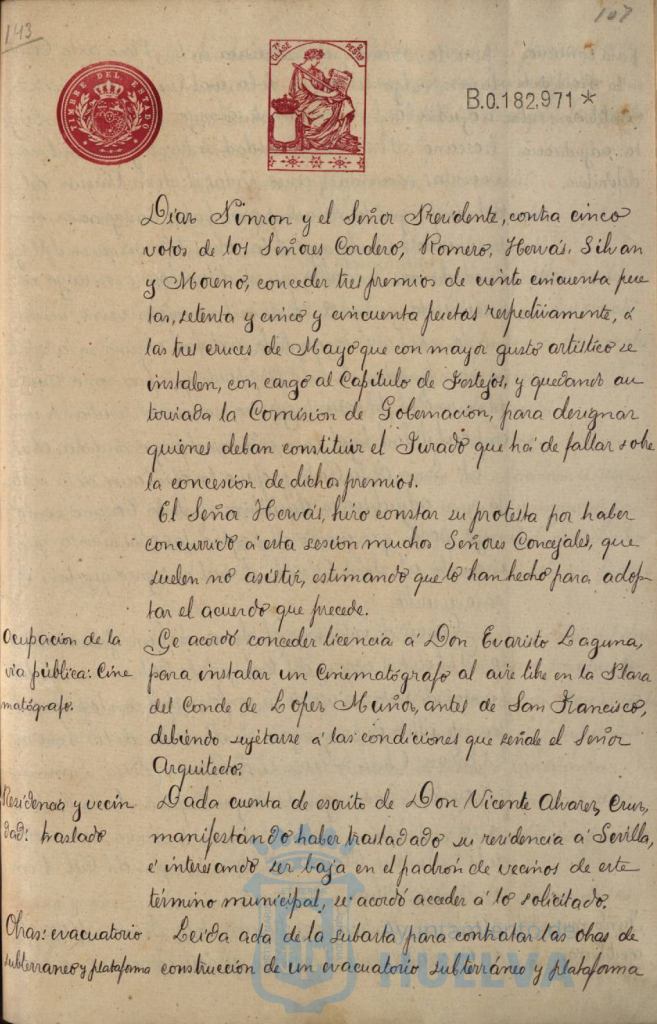 143
107
TIMBRE DEL ESTADO
7ª CLASE
PESETAS
B.0.182,971 *
Diaz Pinzon y el Señor Presidente, contra cinco
votos de los Señores Cordero, Romero, Hervás, Silvan
y Moreno, conceder tres premios de ciento cincuenta pese
tas, setenta y cinco y cincuenta pesetas respectivamente, á
las tres cruces de Mayo que con mayor gusto artístico se
instalen, con cargo al Capítulo de Festejos, y quedando au
torizada la Comision de Gobernacion, para designar
quienes deban constituir el Jurado que há de fallar sobre
la concesion de dichos premios.
El Señor Hervás, hizo constar su protesta por haber
concurrido á esta sesion muchos Señores Concejales, que
suelen no asistir, estimando que lo han hecho para adop-
tar el acuerdo que precede.
Ocupacion de la
via pública: Cine
matógrafo.
Se acordó conceder licencia á Don Evaristo Laguna,
para instalar un Cinematógrafo al aire libe en la Plaza
del Conde de Lopez Muñoz, antes de San Francisco,
debiendo sujetarse á las condiciones que señale el Señor
Arquitecto.
Residencia y vecin
dad: traslado
Dada cuenta de escrito de Don Vicente Alvarez Cruz,
manifestando haber trasladado su residencia á Sevilla,
é interesando ser baja en el padrón de vecinos de este
término municipal, se acordó acceder á lo solicitado.
Obras: evacuatorio
subterraneo y plataforma
Leida acta de la subasta para contratar las obras de
construccion de un evacuatorio subterráneo y plataforma
Ayuntamiento de
HUELVA